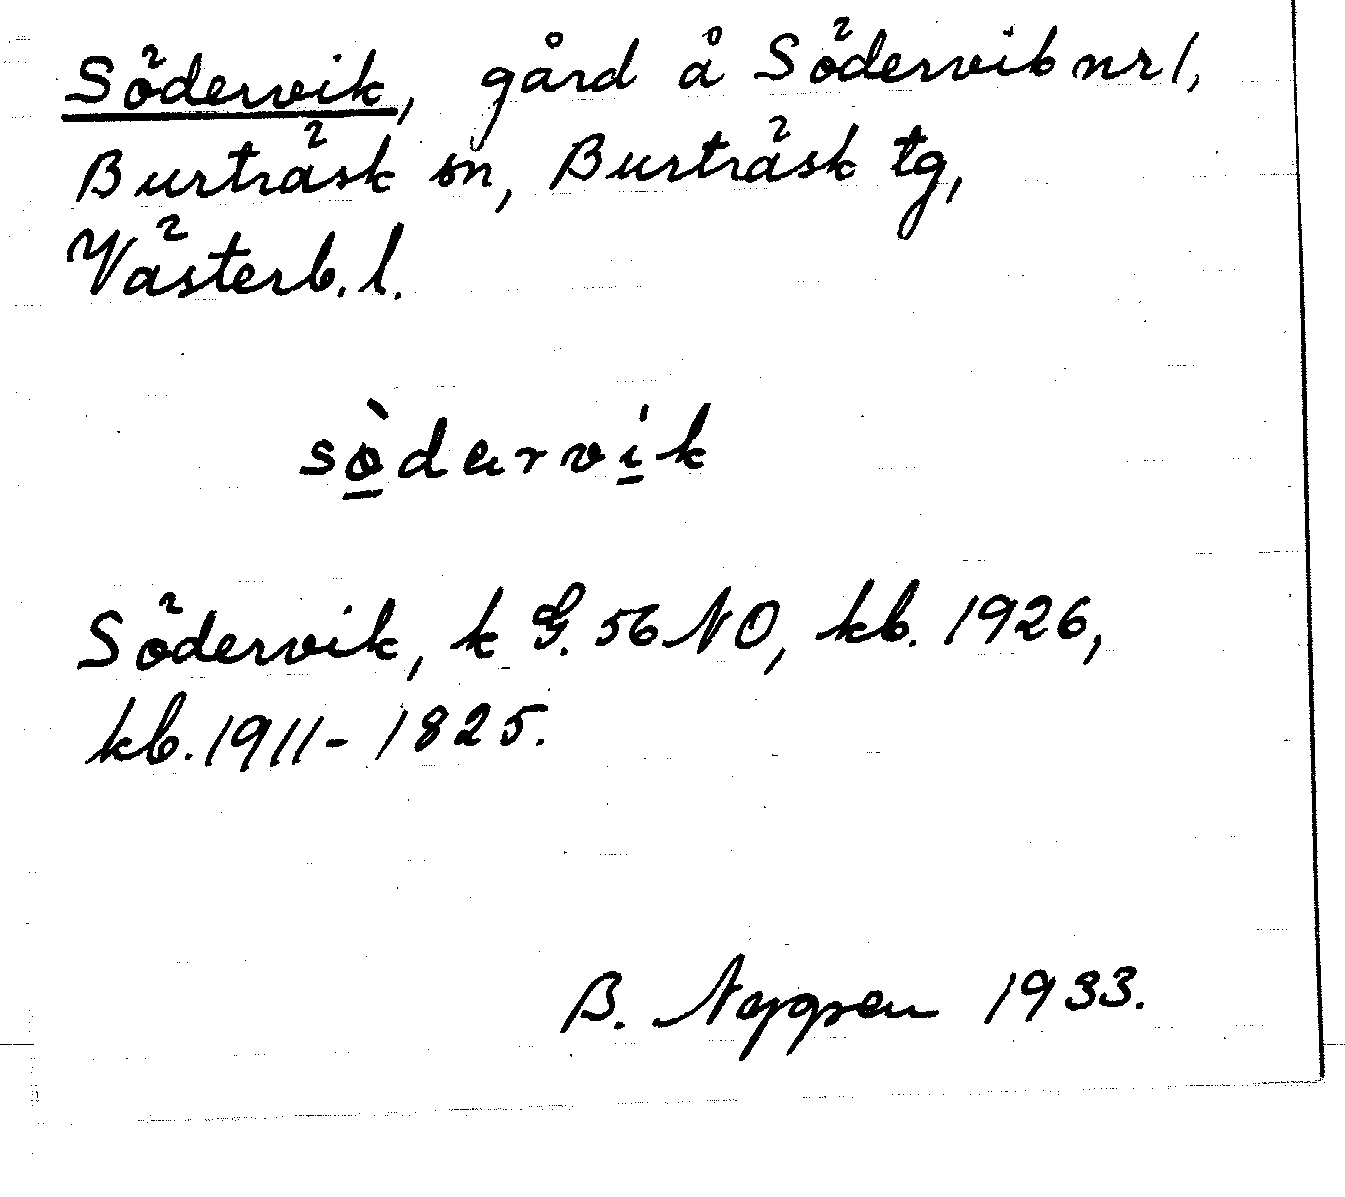 Södervik, gård å Södervik nr 1,
Burträsk sn, Burträsk tg,
Västerb. l.
sö̀dərvik
Södervik, k G. 56 NO, kb. 1926,
kb. 1911-1825.
B. Nygren 1933.